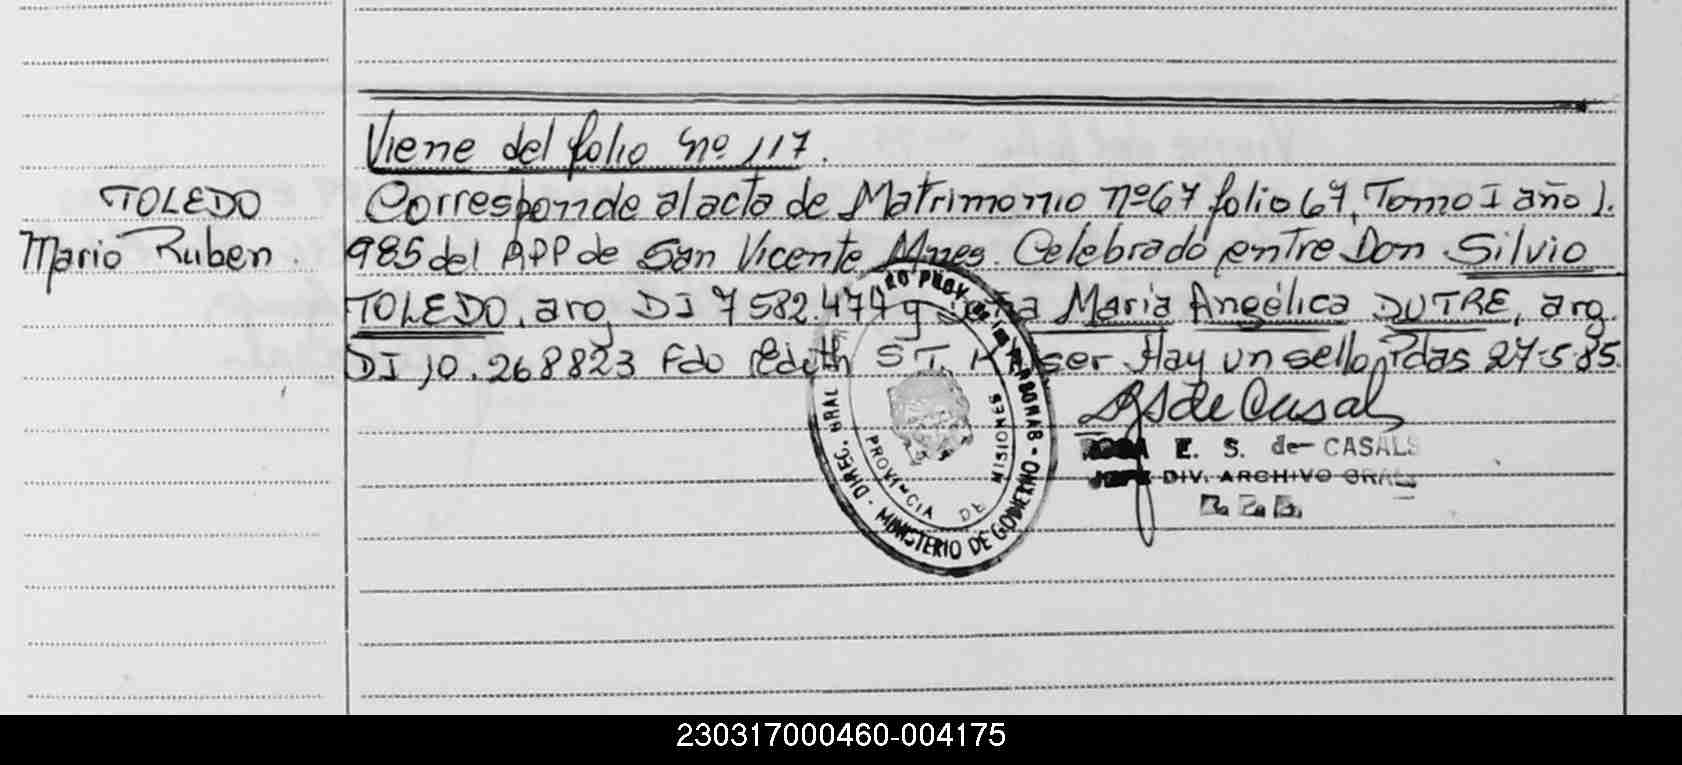 Viene del folio nº 117.
TOLEDO
Mario Ruben.
Corresponde al acta de Matrimonio nº 67 folio 67, Tomo I año 1.
985 del RPP de San Vicente Mnes. Celebrado entre Don Silvio
TOLEDO, arg DI 7582.477 y Doña Maria Angélica DUTRE, arg.
DI 10.268823 Fdo Edith S T. Hay un sello Pdas 27-5-85.
E. S. de CASALS
JEFE DIV. ARCHIVO GRAL
PROVINCIA DE MISIONES
DIREC. GRAL
MINISTERIO DE GOBIERNO
230317000460-004175